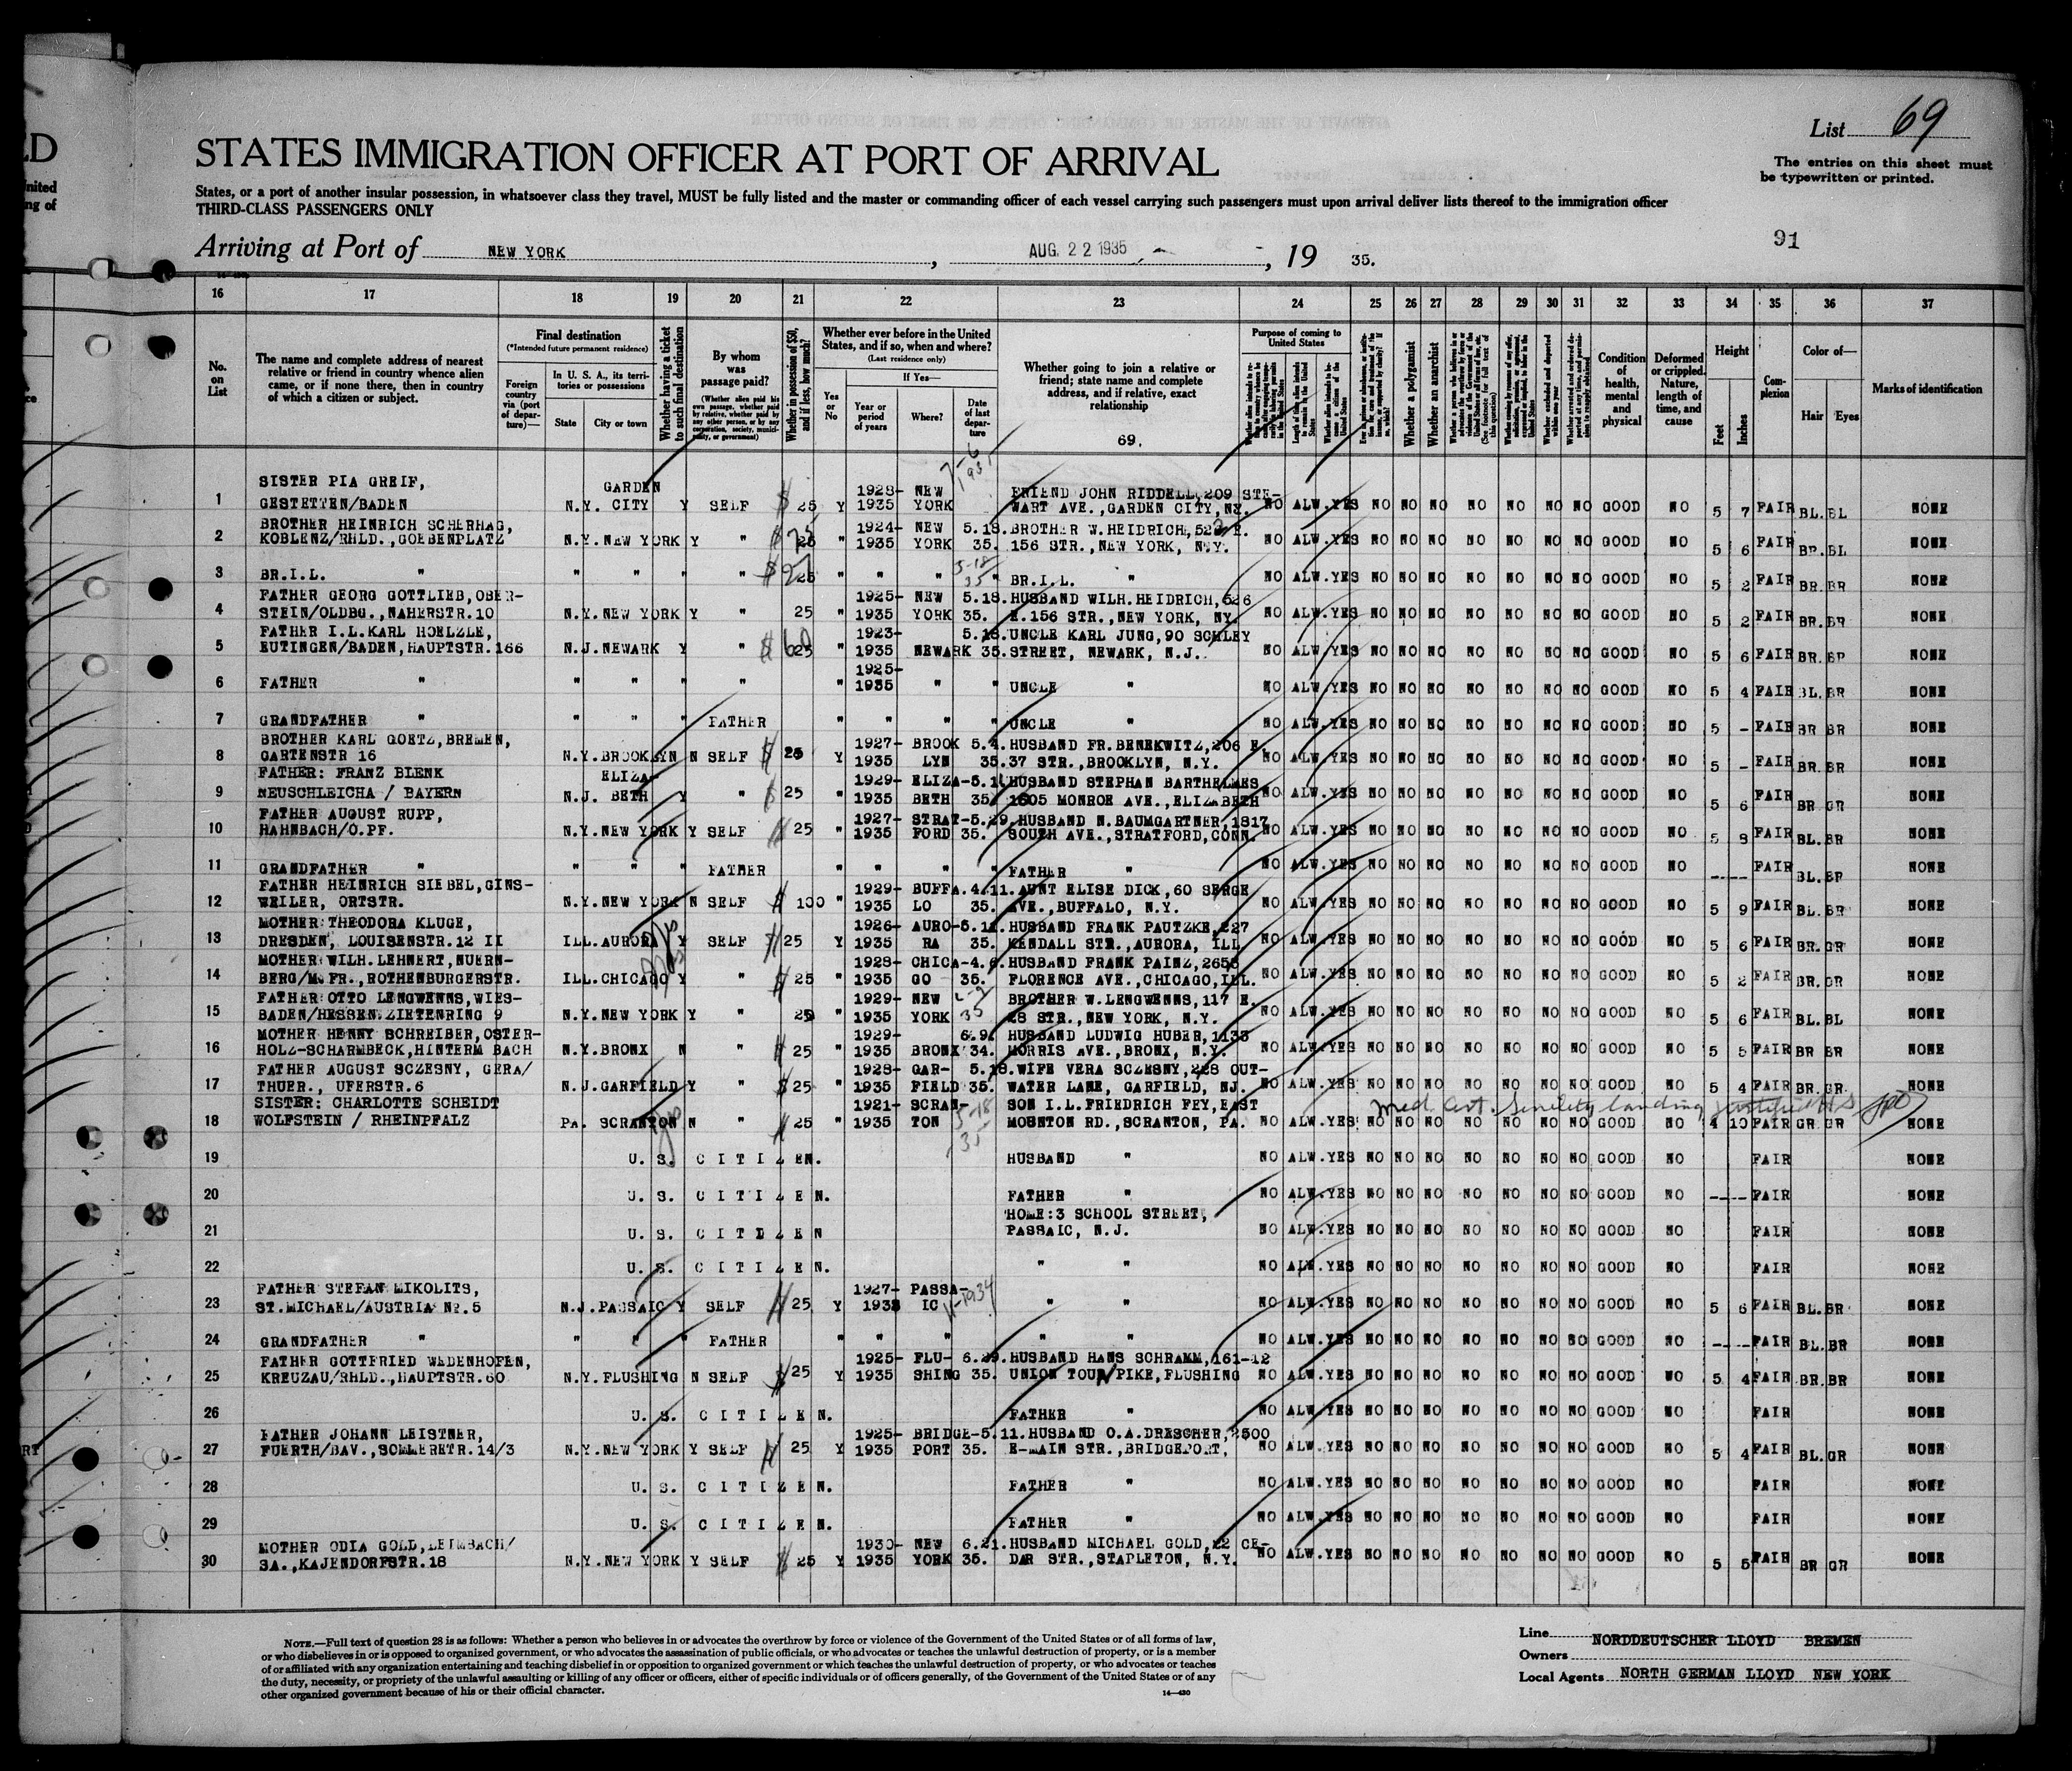 List 69
STATES IMMIGRATION OFFICER AT PORT OF ARRIVAL
The entries on this sheet must
be typewritten or printed.
States, or a port of another insular possession, in whatsoever class they travel, MUST be fully listed and the master or commanding officer of each vessel carrying such passengers must upon arrival deliver lists thereof to the immigration officer
THIRD-CLASS PASSENGERS ONLY
Arriving at Port of NEW YORK, AUG. 22 1935, 19 35.
91
16 17 18 19 20 21 22 23 24 25 26 27 28 29 30 31 32 33 34 35 36 37
No. on List
The name and complete address of nearest relative or friend in country whence alien came, or if none there, then in country of which a citizen or subject.
Final destination
(*Intended future permanent residence)
Foreign country via (port of departure)—
In U. S. A., its territories or possessions
State
City or town
Whether having a ticket to such final destination
By whom was passage paid?
(Whether alien paid his own passage, whether paid by relative, whether paid by any other person, or by any corporation, society, municipality, or government)
Whether in possession of $50, and if less, how much?
Whether ever before in the United States, and if so, when and where?
(Last residence only)
Yes or No
If Yes—
Year or period of years
Where?
Date of last departure
Whether going to join a relative or friend; state name and complete address, and if relative, exact relationship
69.
Purpose of coming to United States
Whether a polygamist
Whether an anarchist
Condition of health, mental and physical
Deformed or crippled. Nature, length of time, and cause
Height
Feet
Inches
Complexion
Color of—
Hair
Eyes
Marks of identification
7-6 1935
1 SISTER PIA GREIF, GESTETTEN/BADEN N.Y. GARDEN CITY Y SELF $ 25 Y 1928-1935 NEW YORK FRIEND JOHN RIDDELL, 209 STEWART AVE., GARDEN CITY, NY. NO ALW. YES NO NO NO NO NO NO NO GOOD NO 5 7 FAIR BL. BL NONE
2 BROTHER HEINRICH SCHERHAG, KOBLENZ/RHLD., GOEBENPLATZ N.Y. NEW YORK Y " $ 25 " 1924-1935 NEW YORK 5.18.35. BROTHER W. HEIDRICH, 526 E. 156 STR., NEW YORK, N.Y. NO ALW. YES NO NO NO NO NO NO NO GOOD NO 5 6 FAIR BR. BL NONE
3 BR.I.L. " " " " " $ " " " 5-18 35 BR.I.L. " NO ALW. YES NO NO NO NO NO NO NO GOOD NO 5 2 FAIR BR. BR NONE
4 FATHER GEORG GOTTLIEB, OBERSTEIN/OLDBG., NAHERSTR. 10 N.Y. NEW YORK Y " 25 " 1925-1935 NEW YORK 5.18.35. HUSBAND WILH. HEIDRICH, 526 E. 156 STR., NEW YORK, NY. NO ALW. YES NO NO NO NO NO NO NO GOOD NO 5 2 FAIR BR. BR NONE
5 FATHER I.L. KARL HOELZLE, EUTINGEN/BADEN, HAUPTSTR. 166 N.J. NEWARK Y " $ 60 25 " 1923-1935 NEWARK 5.18.35. UNCLE KARL JUNG, 90 SCHLEY STREET, NEWARK, N.J. NO ALW. YES NO NO NO NO NO NO NO GOOD NO 5 6 FAIR BR. BR NONE
6 FATHER " " " " " " 1925-1935 " " UNCLE " NO ALW. YES NO NO NO NO NO NO NO GOOD NO 5 4 FAIR BL. BR NONE
7 GRANDFATHER " " " " FATHER " " " " UNCLE " NO ALW. YES NO NO NO NO NO NO NO GOOD NO 5 - FAIR BR BR NONE
8 BROTHER KARL GOETZ, BREMEN, GARTENSTR 16 N.Y. BROOKLYN N SELF $ 25 Y 1927-1935 BROOKLYN 5.4.35. HUSBAND FR. BENEKWITZ, 206 E. 37 STR., BROOKLYN, N.Y. NO ALW. YES NO NO NO NO NO NO NO GOOD NO 5 - FAIR BR. BR NONE
9 FATHER: FRANZ BLENK NEUSCHLEICHA / BAYERN N.J. ELIZABETH Y " $ 25 " 1929-1935 ELIZABETH 35. HUSBAND STEPHAN BARTHELMES 1605 MONROE AVE., ELIZABETH NO ALW. YES NO NO NO NO NO NO NO GOOD NO 5 6 FAIR BR GR NONE
10 FATHER AUGUST RUPP, HAHNBACH/O.PF. N.Y. NEW YORK Y SELF 25 " 1927-1935 STRATFORD 5.29.35. HUSBAND N. BAUMGARTNER, 1817 SOUTH AVE., STRATFORD, CONN. NO ALW. YES NO NO NO NO NO NO NO GOOD NO 5 8 FAIR BL. BR NONE
11 GRANDFATHER " " " " FATHER " " " " FATHER " NO ALW. YES NO NO NO NO NO NO NO GOOD NO ---- FAIR BL. BR NONE
12 FATHER HEINRICH SIEBEL, GINSWEILER, ORTSTR. N.Y. NEW YORK N SELF $ 100 " 1929-1935 BUFFALO 4.11.35. AUNT ELISE DICK, 60 SERGE AVE., BUFFALO, N.Y. NO ALW. YES NO NO NO NO NO NO NO GOOD NO 5 9 FAIR BL. BR NONE
13 MOTHER THEODORA KLUGE, DRESDEN, LOUISENSTR. 12 II ILL. AURORA Y SELF 25 Y 1926-1935 AURORA 5.11.35. HUSBAND FRANK PAUTZKE, 227 KENDALL STR., AURORA, ILL NO ALW. YES NO NO NO NO NO NO NO GOOD NO 5 6 FAIR BR. GR NONE
14 MOTHER WILH. LEHNERT, NUERNBERG/M. FR., ROTHENBURGERSTR. ILL. CHICAGO Y " $ 25 " 1928-1935 CHICAGO 4.6.35. HUSBAND FRANK PAINZ, 2655 FLORENCE AVE., CHICAGO, ILL. NO ALW. YES NO NO NO NO NO NO NO GOOD NO 5 2 FAIR BR. GR NONE
15 FATHER OTTO LENGWENNS, WIESBADEN/HESSEN. ZIETENRING 9 N.Y. NEW YORK Y " 25 " 1929-1935 NEW YORK 35 BROTHER W. LENGWENNS, 117 E. 28 STR., NEW YORK, N.Y. NO ALW. YES NO NO NO NO NO NO NO GOOD NO 5 6 FAIR BL. BL NONE
16 MOTHER HENNY SCHREIBER, OSTERHOLZ-SCHARMBECK, HINTERM BACH N.Y. BRONX N " 25 " 1929-1935 BRONX 6.9.34. HUSBAND LUDWIG HUBER, 1133 MORRIS AVE., BRONX, N.Y. NO ALW. YES NO NO NO NO NO NO NO GOOD NO 5 5 FAIR BR BR NONE
17 FATHER AUGUST SCZESNY, GERA/THUER., UFERSTR. 6 N.J. GARFIELD Y " $ 25 " 1928-1935 GARFIELD 5.18.35. WIFE VERA SCZESNY, 228 OUTWATER LANE, GARFIELD, NJ. NO ALW. YES NO NO NO NO NO NO NO GOOD NO 5 4 FAIR BR. GR. NONE
Med. Cert. Senility landing
18 SISTER: CHARLOTTE SCHEIDT WOLFSTEIN / RHEINPFALZ PA. SCRANTON N " 25 " 1921-1935 SCRANTON 5-18 35 SON I.L. FRIEDRICH FEY, EAST MOUNTON RD., SCRANTON, PA. NO ALW. YES NO NO NO NO NO NO NO GOOD NO 4 10 FAIR GR GR NONE
19 U. S. CITIZEN. HUSBAND " NO ALW. YES NO NO NO NO NO NO NO GOOD NO FAIR NONE
20 U. S. CITIZEN. FATHER " NO ALW. YES NO NO NO NO NO NO NO GOOD NO ---- FAIR NONE
21 U. S. CITIZEN HOME: 3 SCHOOL STREET, PASSAIC, N.J. NO ALW. YES NO NO NO NO NO NO NO GOOD NO FAIR NONE
22 U. S. CITIZEN. " " NO ALW. YES NO NO NO NO NO NO NO GOOD NO FAIR NONE
23 FATHER STEFAN MIKOLITS, ST. MICHAEL/AUSTRIA Nr. 5 N.J. PASSAIC Y SELF 25 Y 1927- PASSAIC " " NO ALW. YES NO NO NO NO NO NO NO GOOD NO 5 6 FAIR BL. BR NONE
24 GRANDFATHER " " " " FATHER " " " " " NO ALW. YES NO NO NO NO NO NO NO GOOD NO ---- FAIR BL. BR NONE
25 FATHER GOTTFRIED WEDENHOFEN, KREUZAU/RHLD., HAUPTSTR. 60 N.Y. FLUSHING N SELF $ 25 Y 1925-1935 FLUSHING 6.29.35. HUSBAND HANS SCHRAMM, 161-12 UNION TOURN PIKE, FLUSHING NO ALW. YES NO NO NO NO NO NO NO GOOD NO 5 4 FAIR BR. BR NONE
26 U. S. CITIZEN. FATHER " NO ALW. YES NO NO NO NO NO NO NO GOOD NO FAIR NONE
27 FATHER JOHANN LEISTNER, FUERTH/BAV., SOMMERSTR. 14/3 N.Y. NEW YORK Y SELF 25 Y 1925-1935 BRIDGEPORT 5.11.35. HUSBAND O.A. DRESCHER, 2500 E-MAIN STR., BRIDGEPORT, NO ALW. YES NO NO NO NO NO NO NO GOOD NO 5 4 FAIR BL. GR NONE
28 U. S. CITIZEN. FATHER " NO ALW. YES NO NO NO NO NO NO NO GOOD NO FAIR NONE
29 U. S. CITIZEN. FATHER " NO ALW. YES NO NO NO NO NO NO NO GOOD NO FAIR NONE
30 MOTHER ODIA GOLD, LEIMBACH/SA., KAJENDORFSTR. 18 N.Y. NEW YORK Y SELF $ 25 Y 1930-1935 NEW YORK 6.21.35. HUSBAND MICHAEL GOLD, 22 CEDAR STR., STAPLETON, N.Y. NO ALW. YES NO NO NO NO NO NO NO GOOD NO 5 5 FAIR BR GR NONE
NOTE.—Full text of question 28 is as follows: Whether a person who believes in or advocates the overthrow by force or violence of the Government of the United States or of all forms of law,
or who disbelieves in or is opposed to organized government, or who advocates the assassination of public officials, or who advocates or teaches the unlawful destruction of property, or is a member
of or affiliated with any organization entertaining and teaching disbelief in or opposition to organized government or which teaches the unlawful destruction of property, or who advocates or teaches
the duty, necessity, or propriety of the unlawful assaulting or killing of any officer or officers, either of specific individuals or of officers generally, of the Government of the United States or of any
other organized government because of his or their official character.
14—430
Line NORDDEUTSCHER LLOYD BREMEN
Owners
Local Agents NORTH GERMAN LLOYD NEW YORK